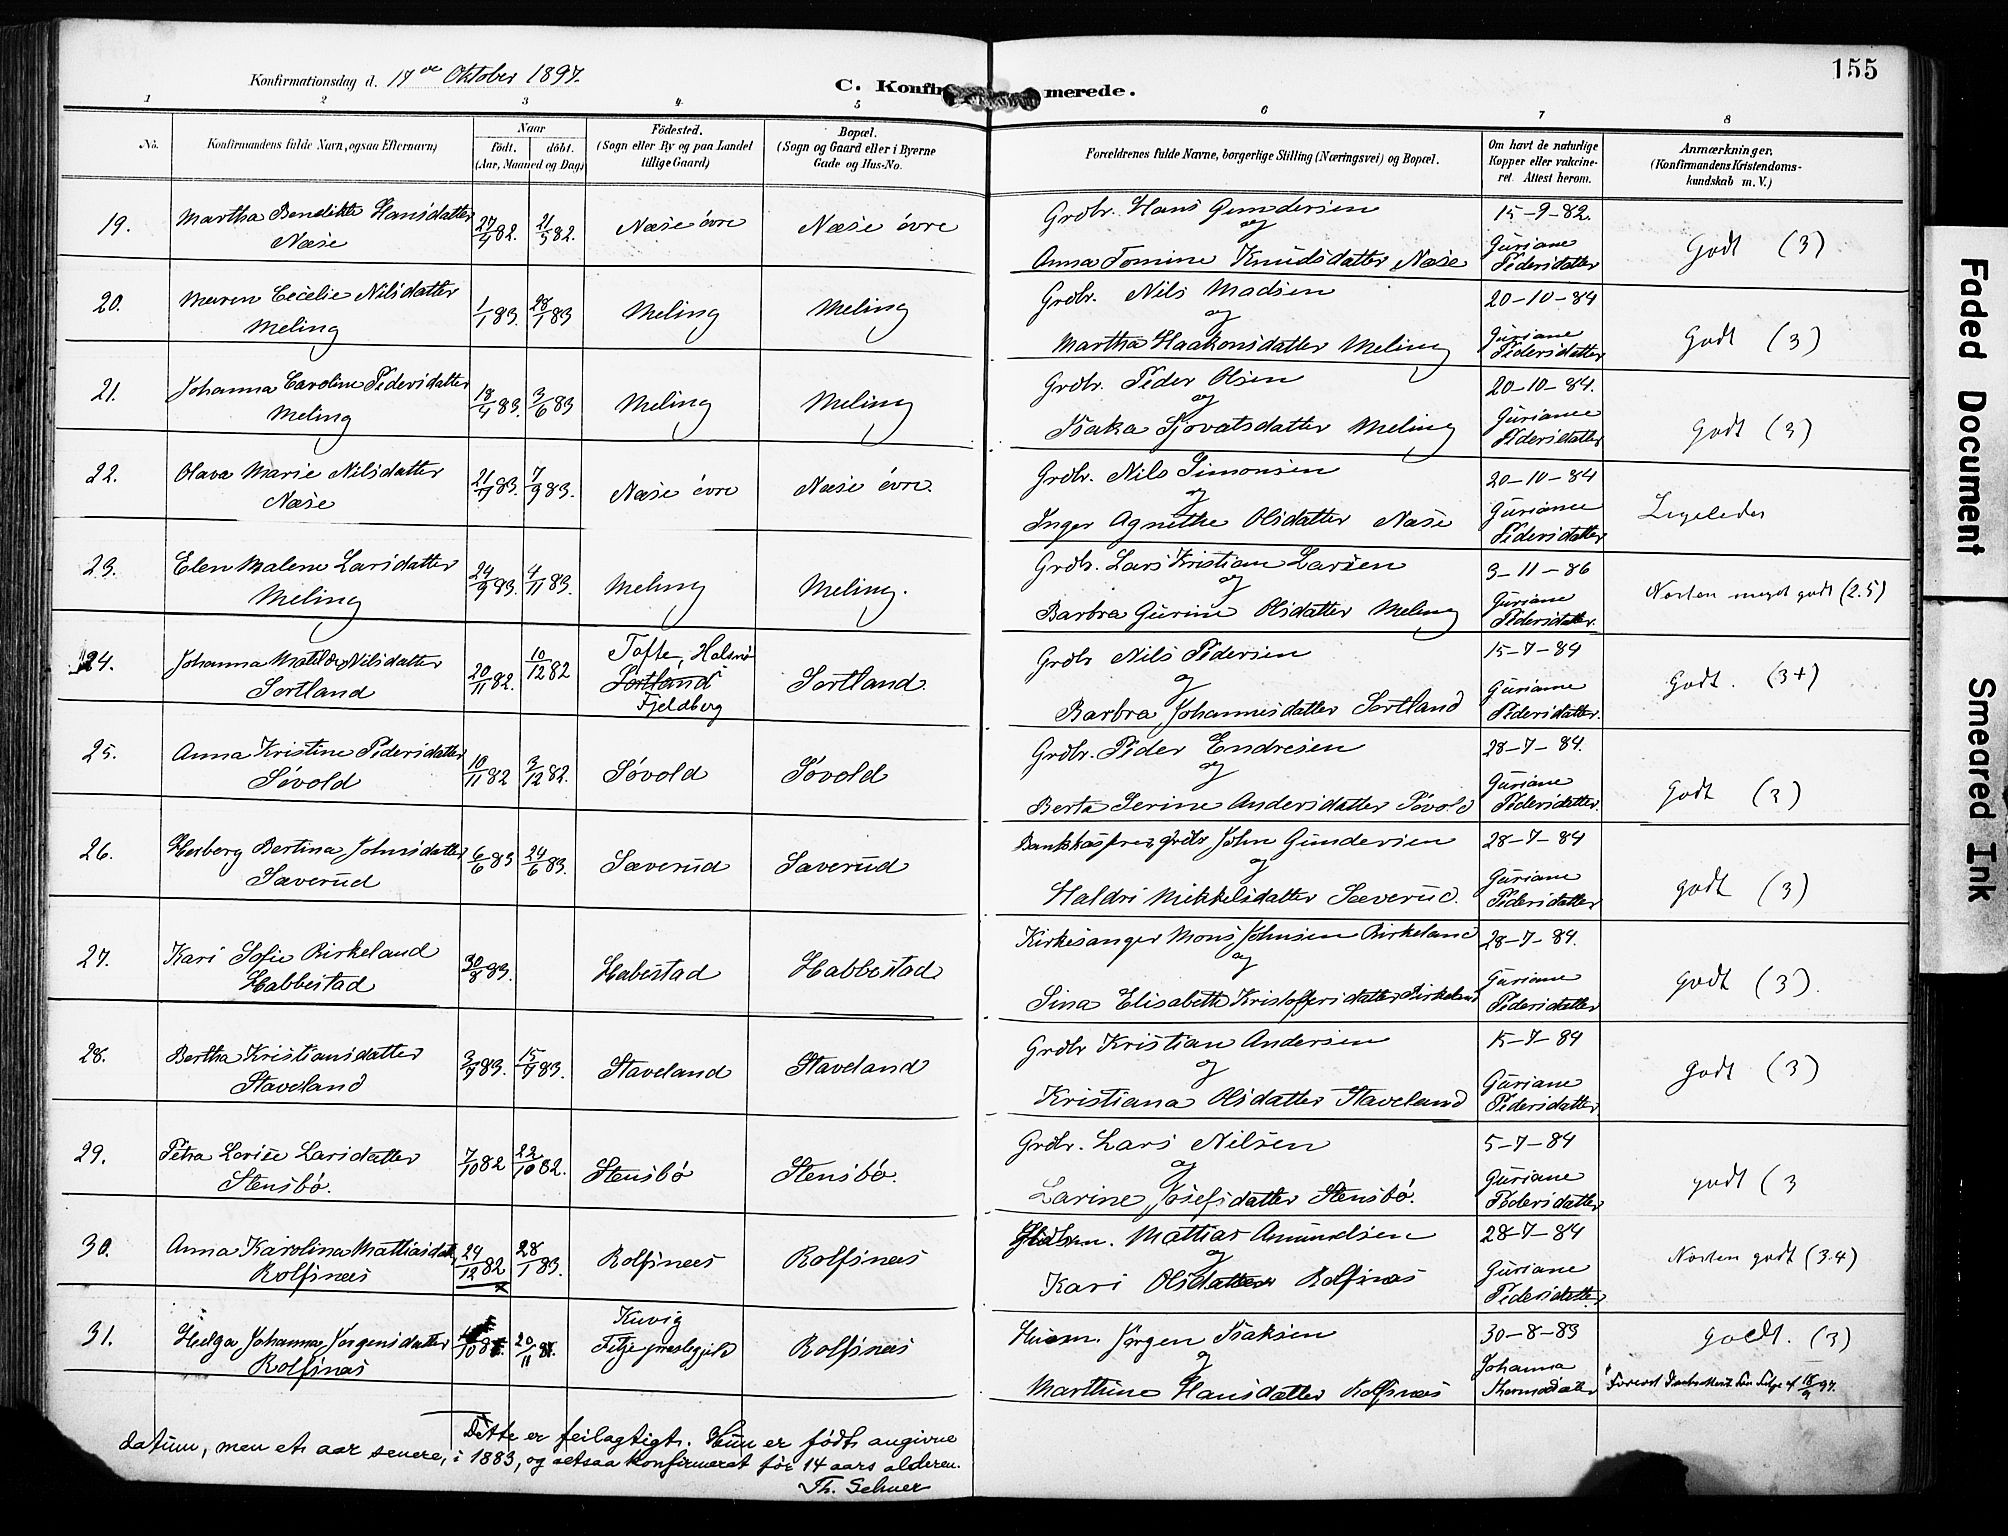 155
Konfirmationsdag d. 17de Oktober 1897.
C. Konfir merede.
1 2 3 4 5 6 7 8
No.
Konfirmandens fulde Navn, ogsaa Efternavn)
Naar
födt. döbt.
(Aar, Maaned og Dag)
Födested.
(Sogn eller By og paa Landet
tillige Gaard)
Bopæl.
(Sogn og Gaard eller i Byerne
Gade og Hus-No.
Forældrenes fulde Navne, borgerlige Stilling (Næringsvei) og Bopæl.
Om havt de naturlige
Kopper eller vakcine-
ret. Attest herom.
Anmærkninger,
(Konfirmandens Kristendoms-
kundskab m. V.)
19. Martha Benedikte Hansdatter
Næse
27/4 82. 21/5 82. Næse övre Næse övre
Grdbr. Hans Gundersen
og
Anna Tomine Knudsdatter Næse
15-9-82.
Guriane
Pedersdatter
Godt (3)
20. Maren Cecelie Nilsdatter
Meling
1/1 83. 28/1 83 Meling Meling
Grdbr. Nils Madsen
og
Martha Haakonsdatter Meling
20-10-84
Guriane
Pedersdatter
Godt (3)
21. Johanna Caroline Pedersdatter
Meling
18/4 83. 3/6 83 Meling Meling
Grdbr. Peder Olsen
og
Isaka Sjovatsdatter Meling
20-10-84.
Guriane
Pedersdatter
Godt (3)
22. Olava Marie Nilsdatter
Næse
83. 7/9 83. Næse övre Næse övre.
Grdbr. Nils Simonsen
og
Inger Agnethe Olsdatter Næse
20-10-84
Guriane
Pedersdatter
Ligeledes
23. Elen Malene Larsdatter
Meling
24/9 83. 4/11 83. Meling Meling.
Grdbr. Lars Kristian Larsen
og
Barbra Gurine Olsdatter Meling
3-11-86
Guriane
Pedersdatter.
Næsten meget godt (2.5)
24. Johanna Matilde Nilsdatter
Sortland
20/11 82. 10/12 82
Tofte, Halsnö
Sortland
Fjeldberg
Sortland.
Grdbr Nils Pedersen
og
Barbra Johannesdatter Sortland
15-7-84
Guriane
Pedersdatter.
Godt. (3+)
25. Anna Kristine Pedersdatter
Sövold
10/11 82 3/12 82. Sövold Sövold
Grdbr. Peder Endresen
og
Berta Serine Andersdatter Sövold
28-7-84.
Guriane
Pedersdatter.
Godt (3)
26. Herborg Bertina Johnsdatter
Sæverud
6/6 83 24/6 83. Sæverud Sæverud
Bankkasserer, grdbr John Gundersen
og
Haldri Mikkelsdatter Sæverud.
28-7-84
Guriane
Pedersdatter
godt (3)
27. Kari Sofie Birkeland
Habbestad
30/8 83. Habestad Habbestad
Kirkesanger Mons Johnsen Birkeland
og
Sina Elisabeth Kristoffersdatter Birkeland
28-7-84.
Guriane
Pedersdatter
godt (3).
28. Bertha Kristiansdatter
Staveland
83. 83. Staveland Staveland
Grdbr Kristian Andersen
og
Kristiana Olsdatter Staveland
15-7-84
Guriane
Pedersdatter
godt (3)
29. Petra Lovise Larsdatter
Stensbö.
7/10 82 22/10 82. Stensbö Stensbö.
Grdbr. Lars Nilsen
og
Larine Josefsdatter Stensbö.
5-7-84
Guriane
Pedersdatter
godt (3
30. Anna Karolina Mattiasdat.
Rolfsnæs
24/12 82 28/1 83. Rolfsnæs Rolfsnæs
Mattias Amundsen
og
Kari Olsdatter Rolfsnæs
28-7-84
Guriane
Pedersdatter
Næsten godt (3.4)
31. Helga Johanna Jørgensdatter
Rolfsnæs
20/11
Kuvig
Fitje præstegjeld
Rolfsnæs
Husm. Jørgen Isaksen
og
Marthine Hansdatter Rolfsnæs
30-8-83
Johanna
Thormodsdatter
godt. (3)
Dette er feilagtigt. Hun er födt angivne
datum, men et aar senere, i 1883, og altsaa konfirmeret för 14 aars alderen.
Th. Gehuer
Faded Document
Smeared Ink